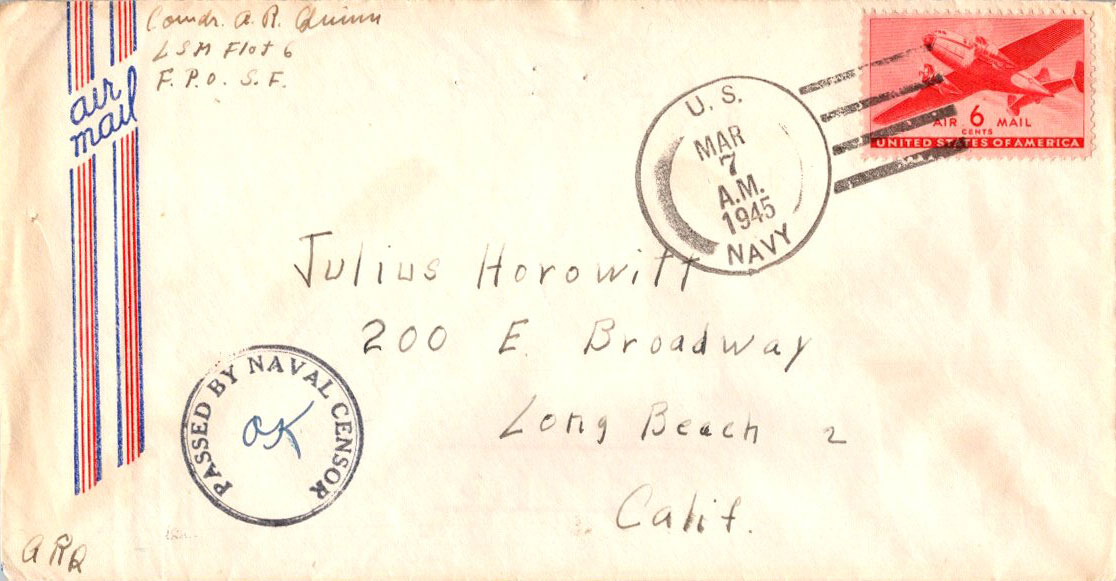 Comdr. A. R. Quinn
LSM Flot 6
F. P. O. S. F.
air
mail
U. S.
MAR
7
A.M.
1945
NAVY
AIR 6 MAIL
CENTS
UNITED STATES OF AMERICA
Julius Horowitt
200 E. Broadway
Long Beach 2
Calif.
PASSED BY NAVAL CENSOR
OK
ARQ